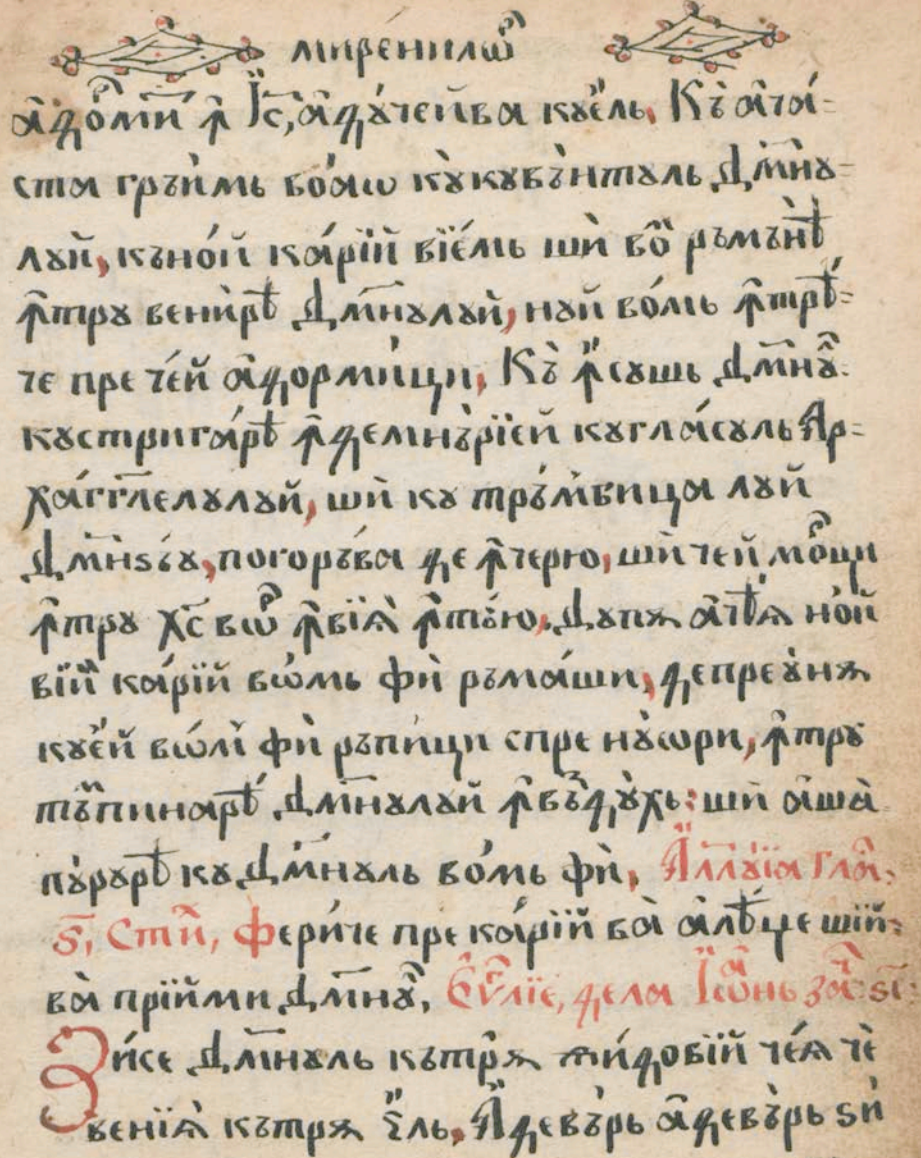 мире́нилѡⷬ҇
а҆дꙋрⷨми́ꙋⷩ ꙟ҆ І҆с҃, а҆дꙋ́чейва кꙋе҆́ль. Къ ача́-
ста гръи́мь во́аѡ кꙋкꙋвъ́нтꙋль Дм҃нꙋ-
лꙋй, къно́й ка́рїй вїе́мь ши̂ вѡⷨ ръмъ́нѣ
ꙟ҆трꙋ вени́рѣ Дм҃нꙋлꙋй, нꙋй во́мь ꙟ҆трѣ́-
че пре че́й а҆дорми́ци, Къ ꙟ҆́сꙋшь Дм҃нꙋⷧ҇
кꙋстрига́рѣ ꙟ҆демнъ́рїей кꙋгла́сꙋль А҆р-
ха́гг҃лелꙋлꙋй, ши̂ кꙋ тръ́мбица лꙋй
Дм҃нѕъ́ꙋ, погоръ́ва де ꙟ҆черю, ши̂чей мо́рⷮци
ꙟ҆трꙋ Хс҃ вѡⷬ҇ ꙟ҆вїѧ̀ ꙟ҆тъ́ю, Дꙋпѫ ачѣ́ѧ но́й
вїй ка́рїй вѡ́мь фи̂ ръма́ши, депреꙋ́нѫ
кꙋе҆́й вѡ́мⷧ фи̂ ръпи́ци спре нꙋ́ѡри, ꙟ҆трꙋ
тъⷨпинарѣ́ Дм҃нꙋлꙋй ꙟ҆въздꙋ́хь: ши̂ а҆ша̀
пꙋ́рꙋрѣ кꙋ Дм҃нꙋль во́мь фи̂, А҆ллꙋ́їа гла́ⷭ҇.
ѕ҃, Стиⷯ, Фери́че пре ка́рїй ва̀ а҆лѣ́џе шїй-
ва̀ прїйми Дм҃нꙋⷧ҇, Є҆ѵⷢ҇лїе, дела І҆ѡа́нь заⷱ҇ ѕі҃
Зи́се Дм҃нꙋль кътрѫ жи́довїй че́ѧ че̂
венїѧ̀ кътрѫ Е҆́ль, А҆девъ́рь а҆девъ́рь ѕи̂